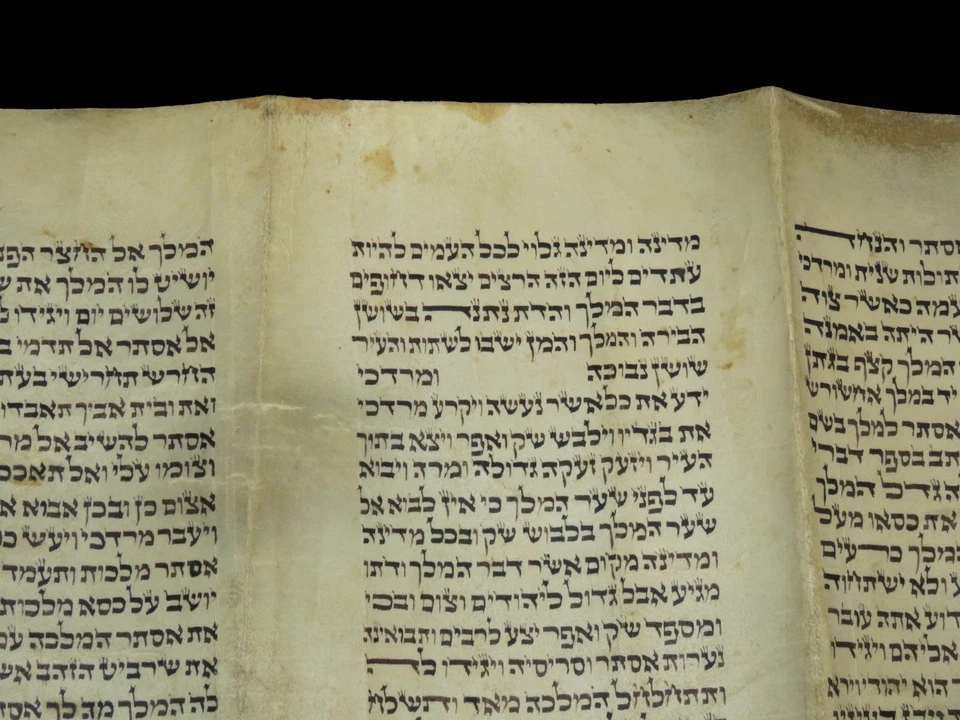 אסתר והנחה
בתולות שנית ומרדכי
עמה כאשר צוה
היתה באמנה
המלך קצף בגתן
יד במלך אחשורש
אסתר למלך בשם
בספר דברי
גדל המלך
את כסאו מעל
כרעים
ולא ישתחוה
אתה עובר
אליהם ויגידו
הוא יהודי וירא
מדינה ומדינה גלוי לכל העמים להיות
עתדים ליום הזה הרצים יצאו דחופים
בדבר המלך והדת נתנה בשושן
הבירה והמלך והמן ישבו לשתות והעיר
שושן נבוכה ומרדכי
ידע את כל אשר נעשה ויקרע מרדכי
את בגדיו וילבש שק ואפר ויצא בתוך
העיר ויזעק זעקה גדולה ומרה ויבוא
עד לפני שער המלך כי אין לבוא אל
שער המלך בלבוש שק ובכל מדינה
ומדינה מקום אשר דבר המלך ודתו
מגיע אבל גדול ליהודים וצום ובכי
ומספד שק ואפר יצע לרבים ותבואינה
נערות אסתר וסריסיה ויגידו לה
ותתחלחל המלכה מאד ותשלח
המלך אל החצר
יושיט לו המלך את
זה שלושים יום ויגידו
אל אסתר אל תדמי
החרש תחרישי בעת
ואת ובית אביך תאבדו
אסתר להשיב אל
וצומו עלי ואל
אצום כן ובכן אבוא
ויעבר מרדכי ויעש
אסתר מלכות ותעמד
יושב על כסא מלכות
את אסתר המלכה
את שרביט הזהב
לה המלך מה לך